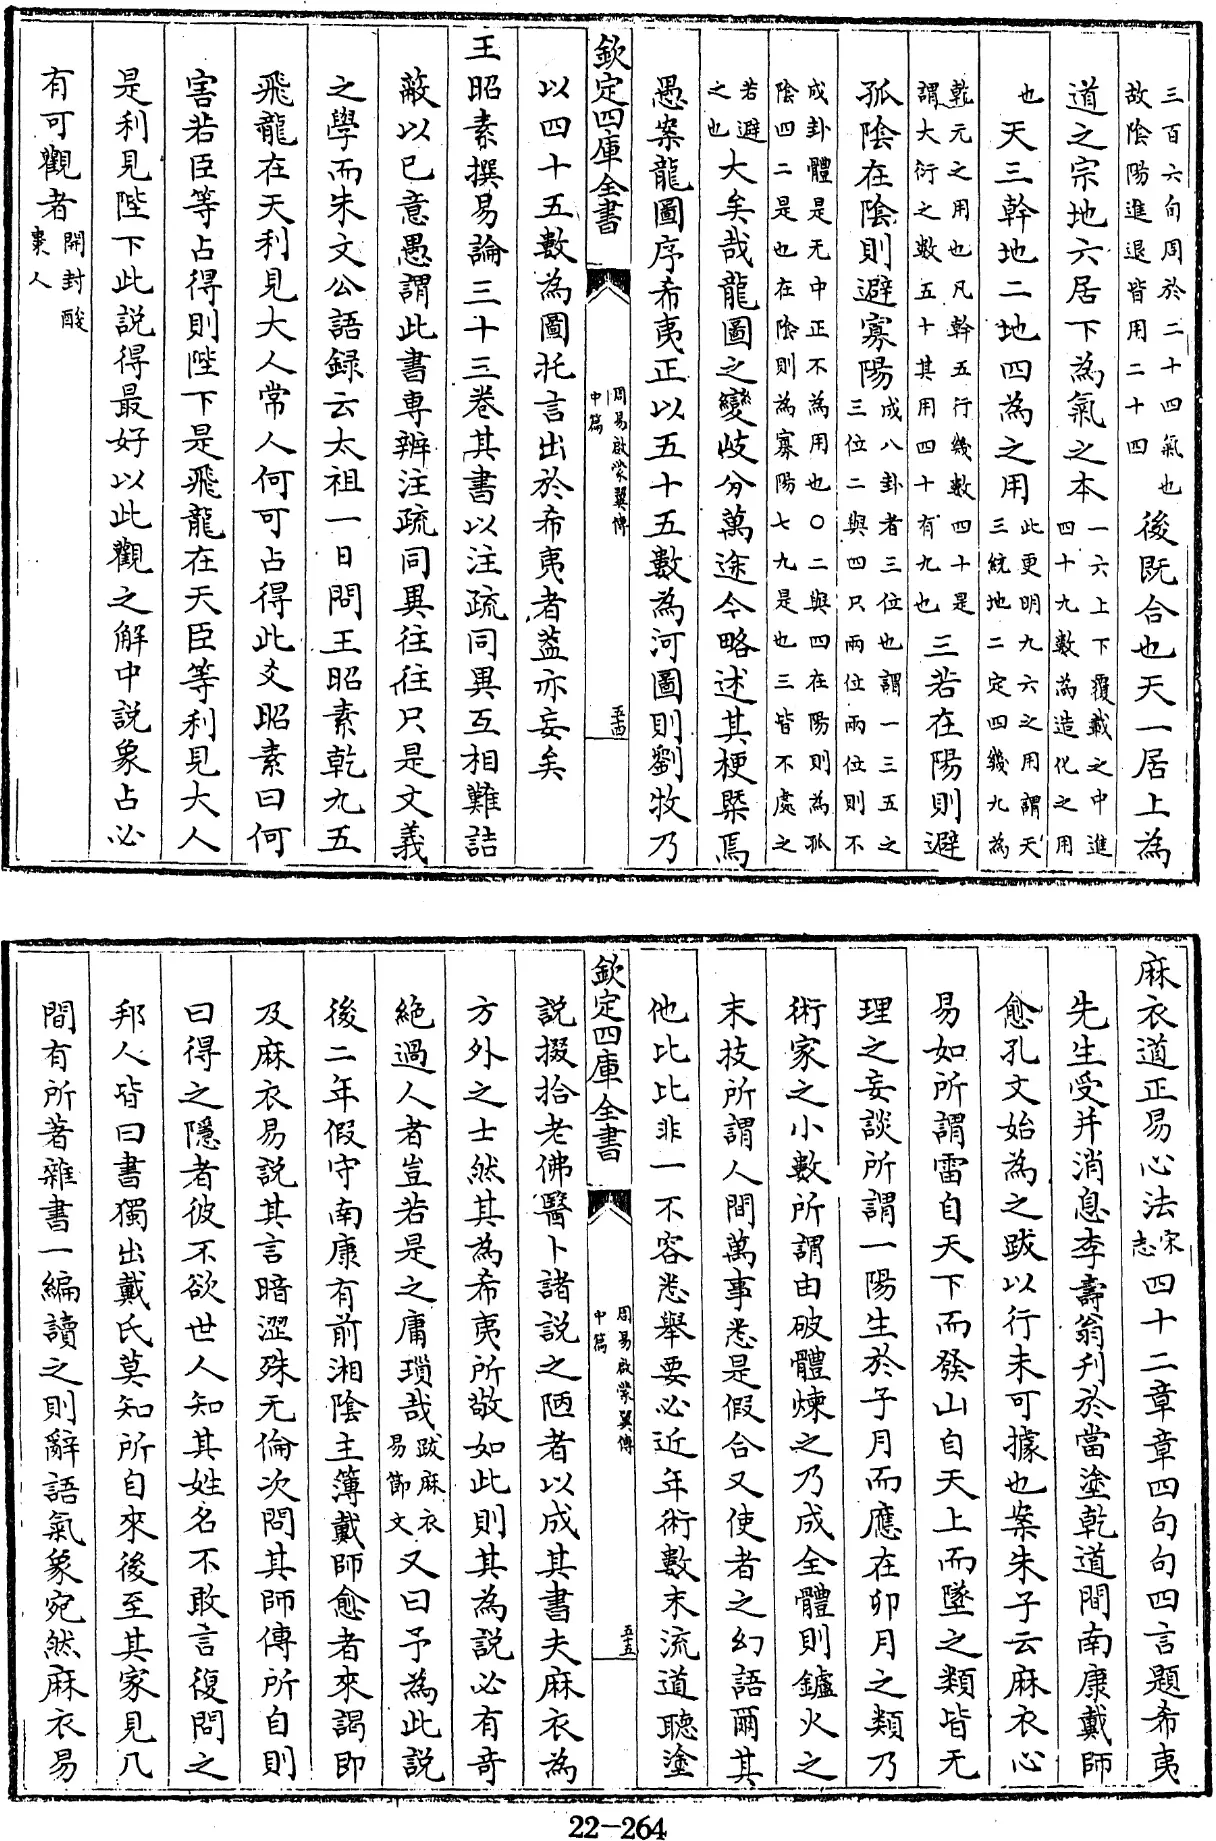 三百六旬周於二十四氣也故陰陽進退皆用二十四後既合也天一居上為
道之宗地六居下為氣之本一六上下覆載之中進四十九數為造化之用
也天三幹地二地四為之用此更明九六之用謂天三統地二定四幾九為
乾元之用也凡幹五行幾數四十是謂大衍之數五十其用四十有九也三若在陽則避
孤陰在陰則避寡陽成八卦者三位也謂一三五之三位二與四只兩位兩位則不
成卦體是无中正不為用也〇二與四在陽則為孤陰四二是也在陰則為寡陽七九是也三皆不處之
若避之也大矣哉龍圖之變歧分萬途今略述其梗槩焉
愚案龍圖序希夷正以五十五數為河圖則劉牧乃
欽定四庫全書 周易啟蒙翼傳中篇 五四
以四十五數為圖托言出於希夷者蓋亦妄矣
王昭素撰易論三十三卷其書以注疏同異互相難詰
蔽以已意愚謂此書專辨注疏同異往往只是文義
之學而朱文公語録云太祖一日問王昭素乾九五
飛龍在天利見大人常人何可占得此爻昭素曰何
害若臣等占得則陛下是飛龍在天臣等利見大人
是利見陛下此說得最好以此觀之解中說象占必
有可觀者開封酸棗人
麻衣道正易心法宋志四十二章章四句句四言題希夷
先生受并消息李壽翁刋於當塗乾道間南康戴師
愈孔文始為之跋以行未可據也案朱子云麻衣心
易如所謂雷自天下而發山自天上而墜之類皆无
理之妄談所謂一陽生於子月而應在卯月之類乃
術家之小數所謂由破體煉之乃成全體則鑪火之
末技所謂人間萬事悉是假合又使者之幻語爾其
他比比非一不容悉舉要必近年術數末流道聽塗
欽定四庫全書 周易啟蒙翼傳中篇 五五
說掇拾老佛醫卜諸說之陋者以成其書夫麻衣為
方外之士然其為希夷所敬如此則其為說必有奇
絶過人者豈若是之庸瑣哉跋麻衣易節文又曰予為此說
後二年假守南康有前湘陰主簿戴師愈者來謁即
及麻衣易說其言暗澀殊无倫次問其師傳所自則
曰得之隱者彼不欲世人知其姓名不敢言復問之
邦人皆曰書獨出戴氏莫知所自來後至其家見几
間有所著雜書一編讀之則辭語氣象宛然麻衣易
22-264